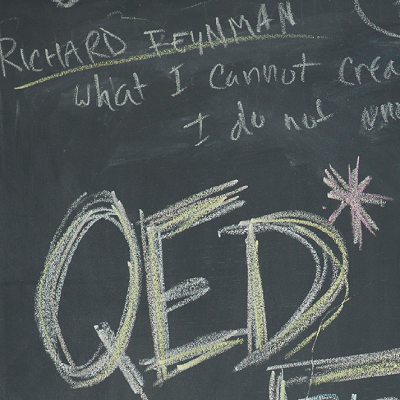 RICHARD FEYNMAN
what I cannot crea
I do not
QED